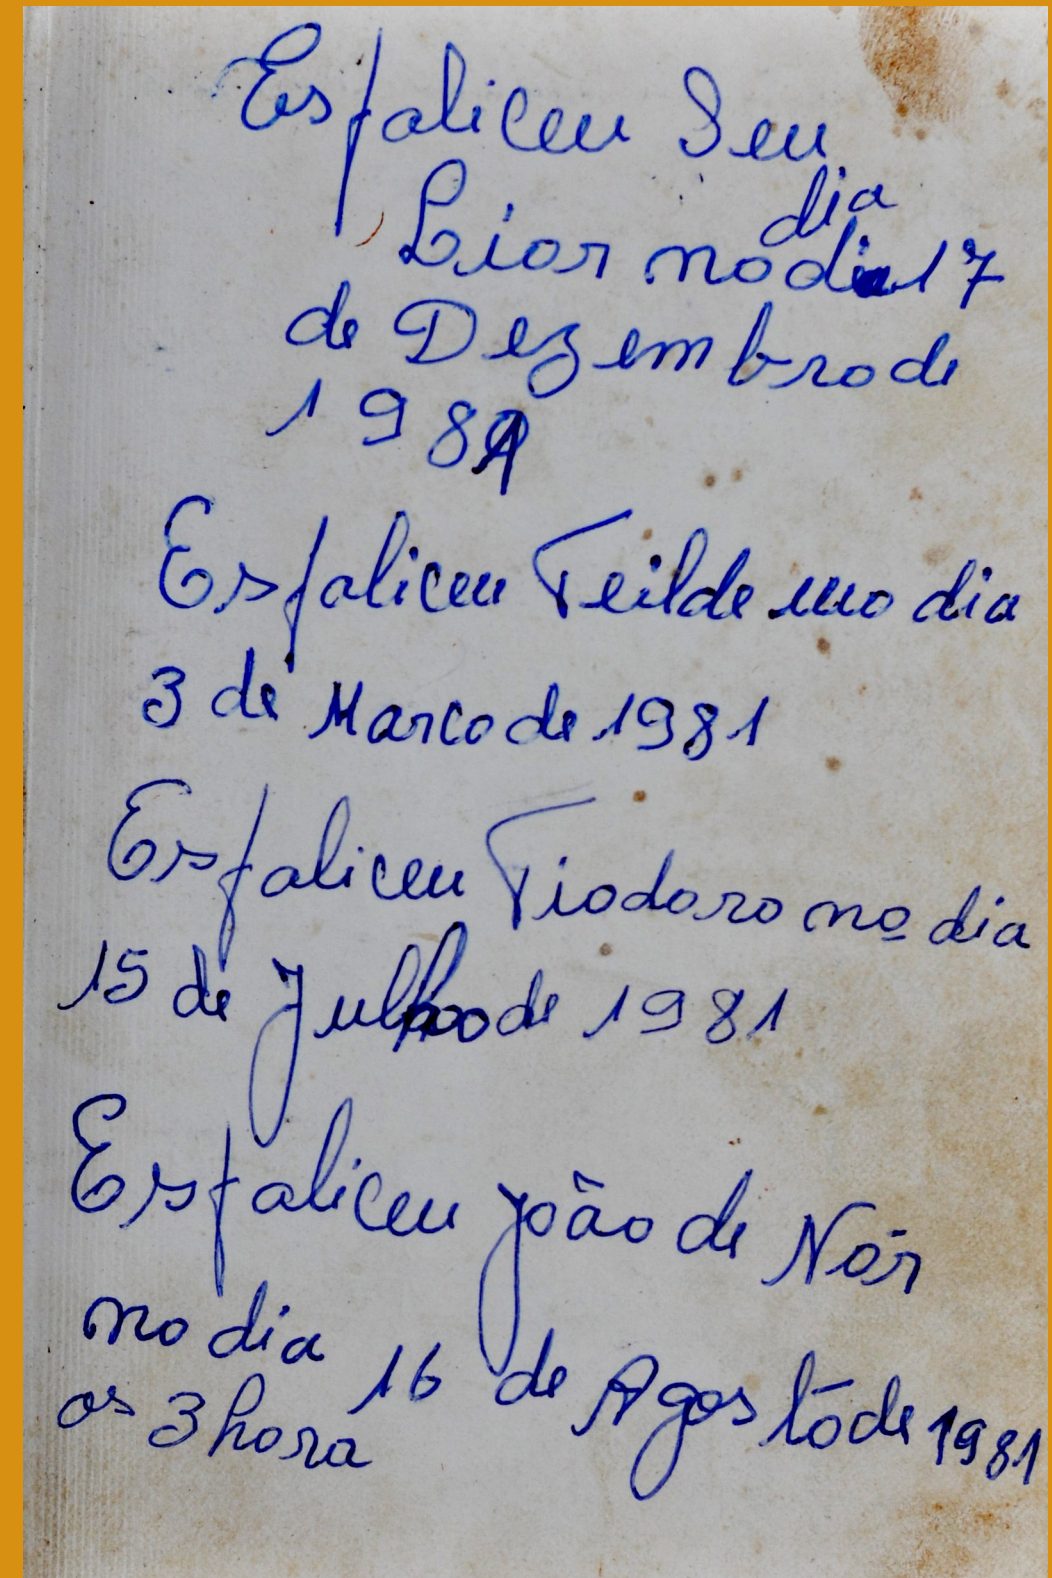 Esfaliceu Seu
dia
Lior no dia 17
de Dezembro de
1981
Esfaliceu Teilde no dia
3 de Marco de 1981
Esfaliceu Tiodoro no dia
15 de Julho de 1981
Esfaliceu João de Nór
no dia 16 de Agosto de 1981
as 3 hora